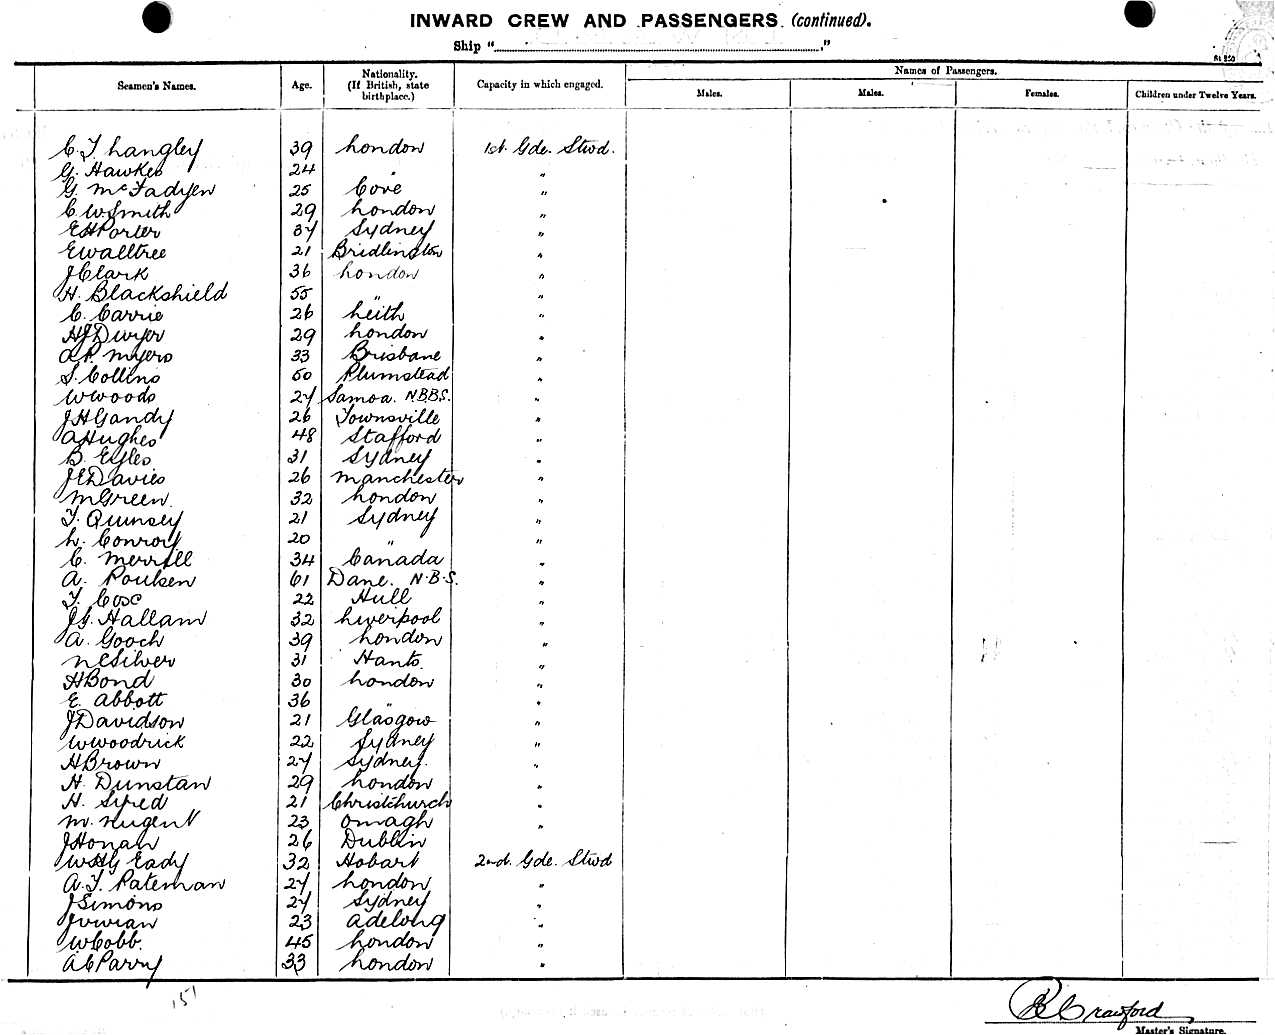 INWARD CREW AND PASSENGERS (continued).
Ship "
."
Seamen's Names. Age. Nationality. (If British, state birthplace.) Capacity in which engaged. Names of Passengers.
Males. Males. Females. Children under Twelve Years.
C. T. Langley 39 London 1st. Gde. Stwd.
G. Hawkes 24 " "
G. McFadyen 25 Cove "
C W Smith 29 London "
E H Porter 37 Sydney "
E Walltree 21 Bridlington "
J Clark 36 London "
H. Blackshield 55 " "
C. Carrie 26 Leith "
H J Dwyer 29 London "
A. P. Myers 33 Brisbane "
S. Collins 50 Plumstead "
W Woods 27 Samoa. N.B.B.S. "
J H Gandy 26 Townsville "
A Hughes 48 Stafford "
B. Eyles 31 Sydney "
J E Davies 26 Manchester "
M Green. 32 London "
T. Quinsey 21 Sydney "
L. Conroy 20 " "
C. Merrill 34 Canada "
A. Poulsen 61 Dane. N.B.S. "
T. Cose 22 Hull "
J. J. Hallam 32 Liverpool "
A. Gooch 39 London "
N C Silver 31 Hants. "
H Bond 30 London "
E. Abbott 36 " "
J Davidson 21 Glasgow "
W Woodrick 22 Sydney "
H Brown 27 Sydney. "
H. Dunstan 29 London "
H. Syred 21 Christchurch "
M. Nugent 23 Omagh "
J Honan 26 Dublin "
Eady 32 Hobart 2nd. Gde. Stwd
A. T. Pateman 27 London "
J Simons 27 Sydney "
J Vivian 23 Adelong "
W Cobb. 45 London "
A C Parry 33 London "
151
Crawford
Master's Signature.